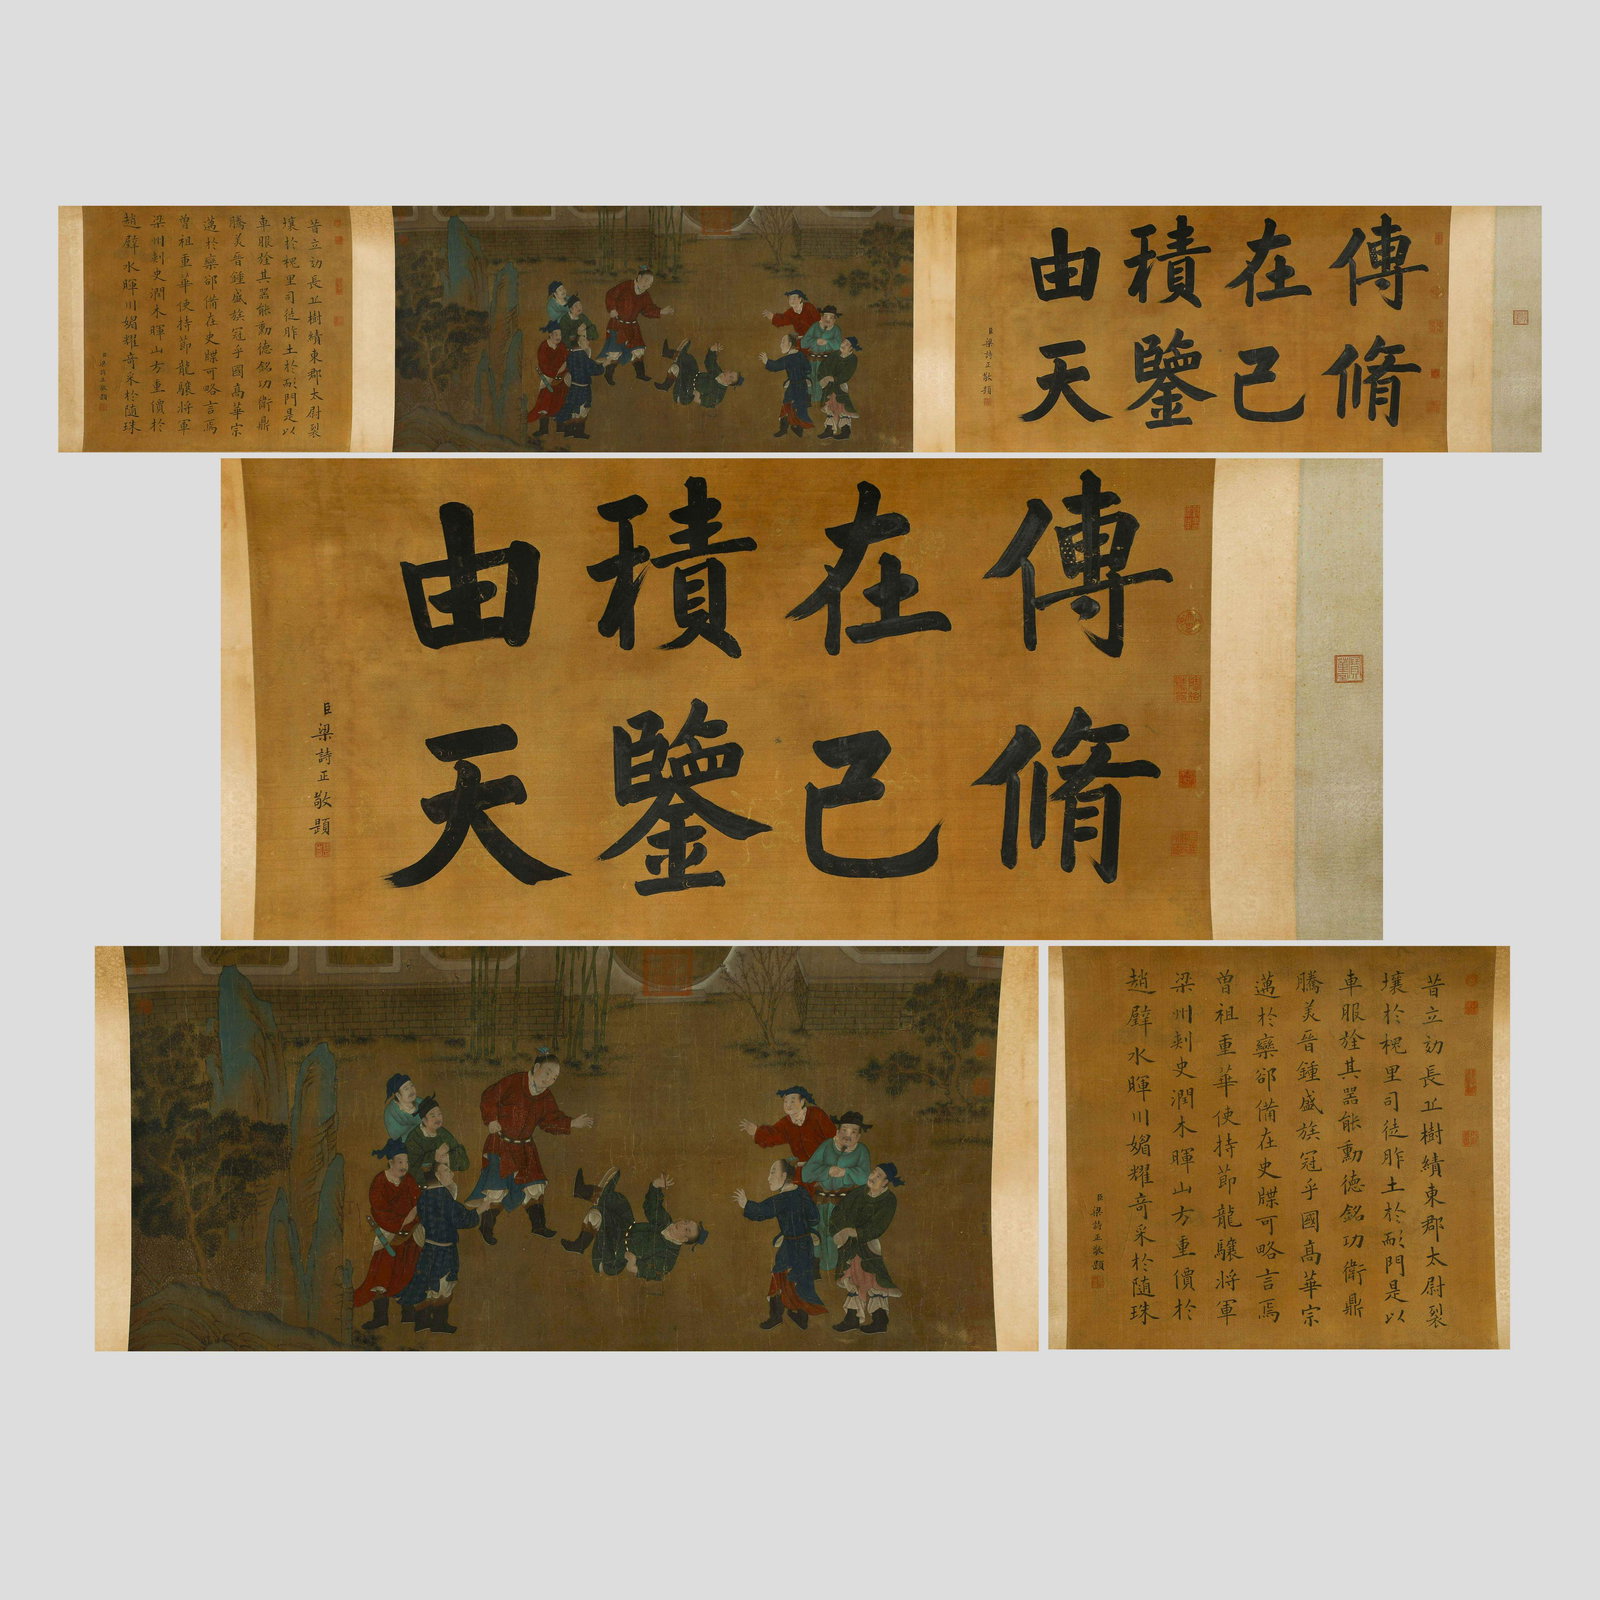 傳脩
在己
積鑒
由天
臣梁詩正敬題
昔立効長丘樹績東郡太尉裂
壤於槐里司徒胙土於耏門是以
車服旌其器能勳德銘功衛鼎
騰美晉鍾盛族冠乎國高華宗
邁於欒郤備在史牒可略言焉
曾祖重華使持節龍驤將軍
梁州刺史潤木暉山方重價於
趙璧水暉川媚耀奇采於隨珠
臣梁詩正敬題
傳脩
在己
積鑒
由天
臣梁詩正敬題
昔立効長丘樹績東郡太尉裂
壤於槐里司徒胙土於耏門是以
車服旌其器能勳德銘功衛鼎
騰美晉鍾盛族冠乎國高華宗
邁於欒郤備在史牒可略言焉
曾祖重華使持節龍驤將軍
梁州刺史潤木暉山方重價於
趙璧水暉川媚耀奇采於隨珠
臣梁詩正敬題